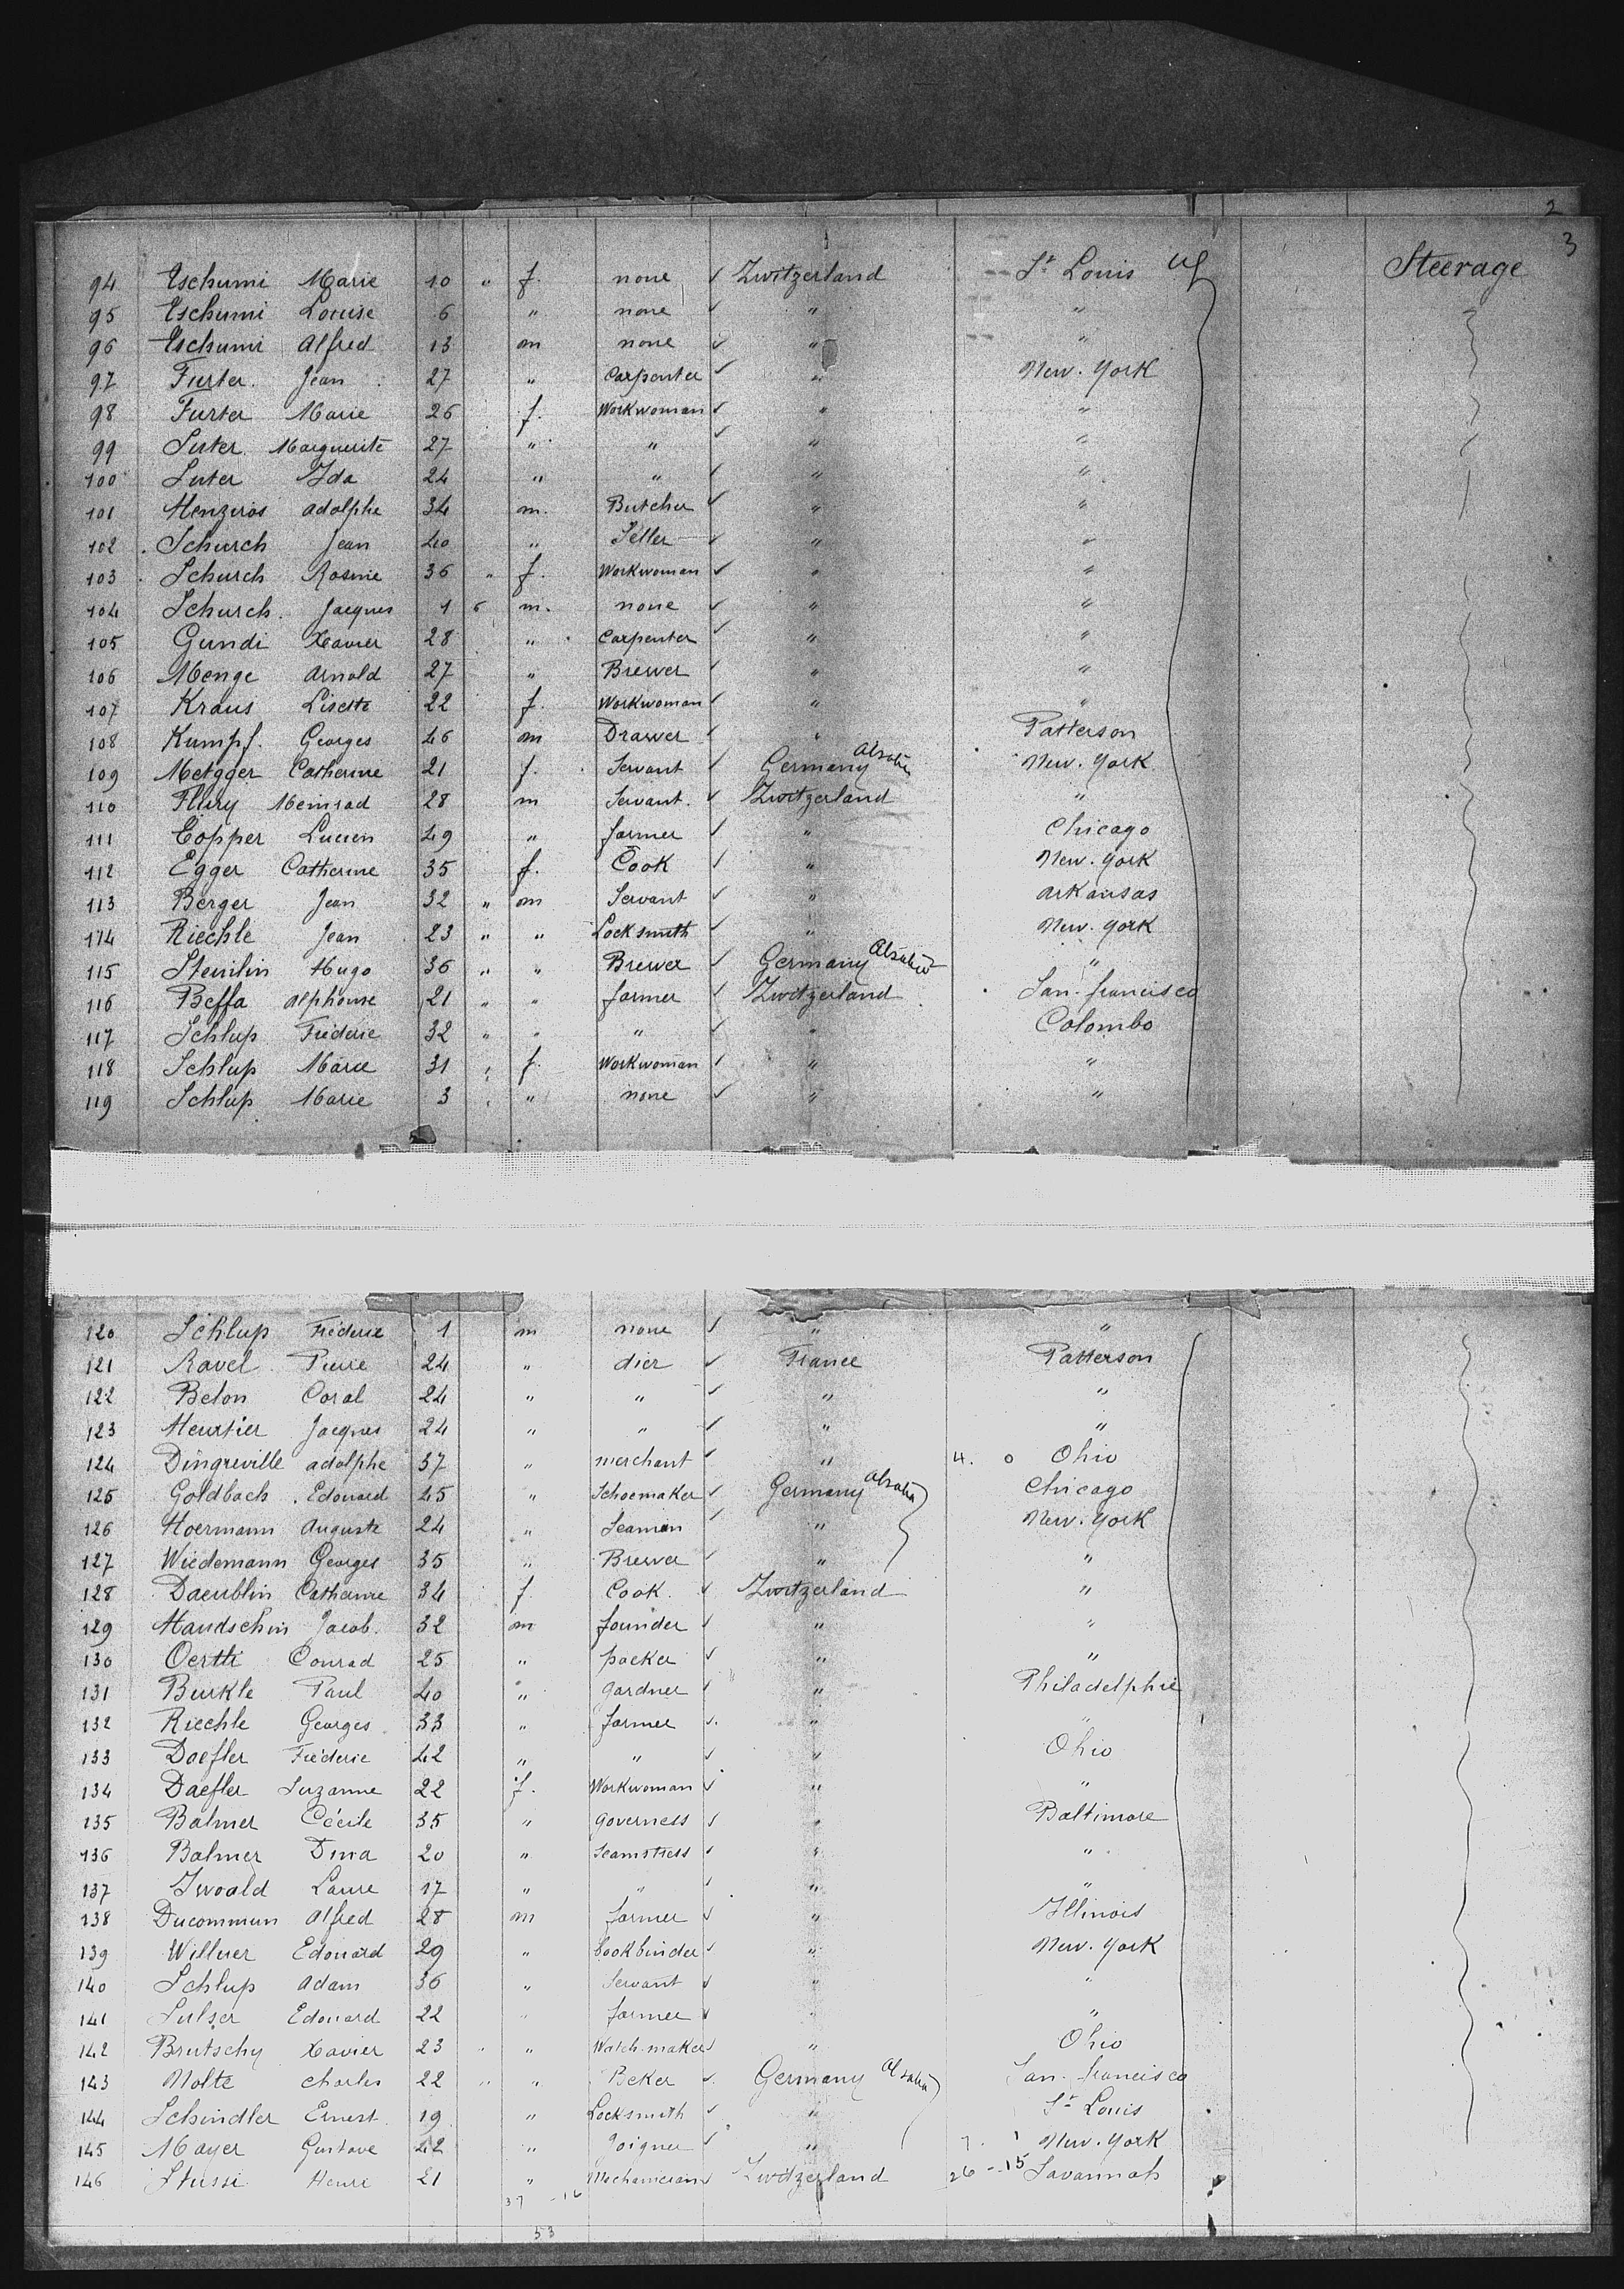 2
3
94 Eschumi Marie 10 " f. none ✓ Zwitzerland St Louis Steerage
95 Eschumi Louise 6 " none ✓ " "
96 Eschumi Alfred 13 m none ✓ " "
97 Furter Jean 27 " Carpenter ✓ " New. York
98 Furter Marie 26 f. Workwoman ✓ " "
99 Suter Marguerite 27 " " ✓ " "
100 Suter Ida 24 " " ✓ " "
101 adolphe 34 m. Butcher ✓ " "
102 Schurch Jean 40 " Seller ✓ " "
103 Schurch Rosine 36 " f. Workwoman ✓ " "
104 Schurch Jacques 1 6 m. none ✓ " "
105 Gundi Xavier 28 " Carpenter ✓ " "
106 Menge Arnold 27 " Brewer ✓ " "
107 Kraus Lisette 22 f. Workwoman ✓ " "
108 Kumpf. Georges 46 m Drawer ✓ " Patterson
109 Metzger Catherine 21 f. Servant ✓ Germany New. York
110 Flury Meinrad 28 m Servant. ✓ Zwitzerland "
111 Eopper Lucien 49 " farmer ✓ " Chicago
112 Egger Catherine 35 f. Cook ✓ " New. York
113 Berger Jean 32 " m Servant ✓ " arkansas
114 Riechle Jean 23 " " Locksmith ✓ " New. York
115 Steinlin Hugo 36 " " Brewer ✓ Germany "
116 Beffa alphonse 21 " " farmer ✓ Zwitzerland San. francisco
117 Schlup Fréderic 32 " " " ✓ " Colombo
118 Schlup Marie 31 " f. Workwoman ✓ " "
119 Schlup Marie 3 " " none ✓ " "
120 Schlup Fréderic 1 m none ✓ " "
121 Ravel Pierre 24 " dier ✓ France Patterson
122 Belon Coral 24 " " ✓ " "
123 Meurtier Jacques 24 " " ✓ " "
124 Dingreville adolphe 37 " merchant ✓ " 4. o Ohio
125 Goldbach Edouard 45 " Schoemaker ✓ Germany Chicago
126 Hoermann Auguste 24 " Seaman ✓ " New. York
127 Wiedemann Georges 35 " Brewer ✓ " "
128 Daeublin Catherine 34 f Cook ✓ Zwitzerland "
129 Handschin Jacob. 32 m founder ✓ " "
130 Oertli Conrad 25 " packer ✓ " "
131 Burkle Paul 40 " gardner ✓ " Philadelphie
132 Riechle Georges 33 " farmer ✓ " "
133 Daefler Fréderic 42 " " ✓ " Ohio
134 Daefler Suzanne 22 f. Workwoman ✓ " "
135 Balmer Cécile 35 " governess ✓ " Baltimore
136 Balmer Dina 20 " Seamstress ✓ " "
137 Iwoald Laure 17 " " ✓ " "
138 Ducommun Alfred 28 m farmer ✓ " Illinois
139 Willner Edouard 29 " bookbinder ✓ " New. York
140 Schlup Adam 36 " Servant ✓ " "
141 Sulser Edouard 22 " farmer ✓ " "
142 Brutschy Xavier 23 " " Watch-maker ✓ " Ohio
143 Nolte Charles 22 " " Beker ✓ Germany San. francisco
144 Schindler Ernest 19 " Locksmith ✓ " St Louis
145 Mayer Gustave 42 " Joigner ✓ " 7. 1 New. York
146 Stussi Henri 21 " Mechanician ✓ Zwitzerland 26 - 15 Savannah
37 - 16
53